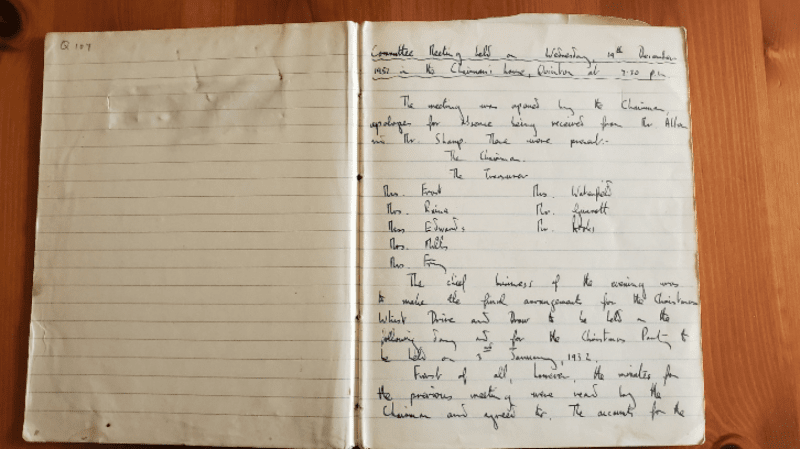 Q 107
Committee Meeting held on Wednesday, 19th December
1951 in the Chairman's house, Quinton at 7.30 p.m.
The meeting was opened by the Chairman,
apologies for absence being received from Mr Allan
Mr. Sharp. There were present:-
The Chairman.
The Treasurer
Mrs. Frost Mrs. Waterfield
Mrs. Mr.
Miss Edwards Mr.
Mrs. Mills
Mrs.
The chief business of the evening was
to make the final arrangements for the Christmas
Whist Drive and Draw to be held on the
following day and for the Christmas Party to
be held on 3rd January, 1952.
First of all, however, the minutes for
the previous meeting were read by the
Chairman and agreed to. The accounts for the